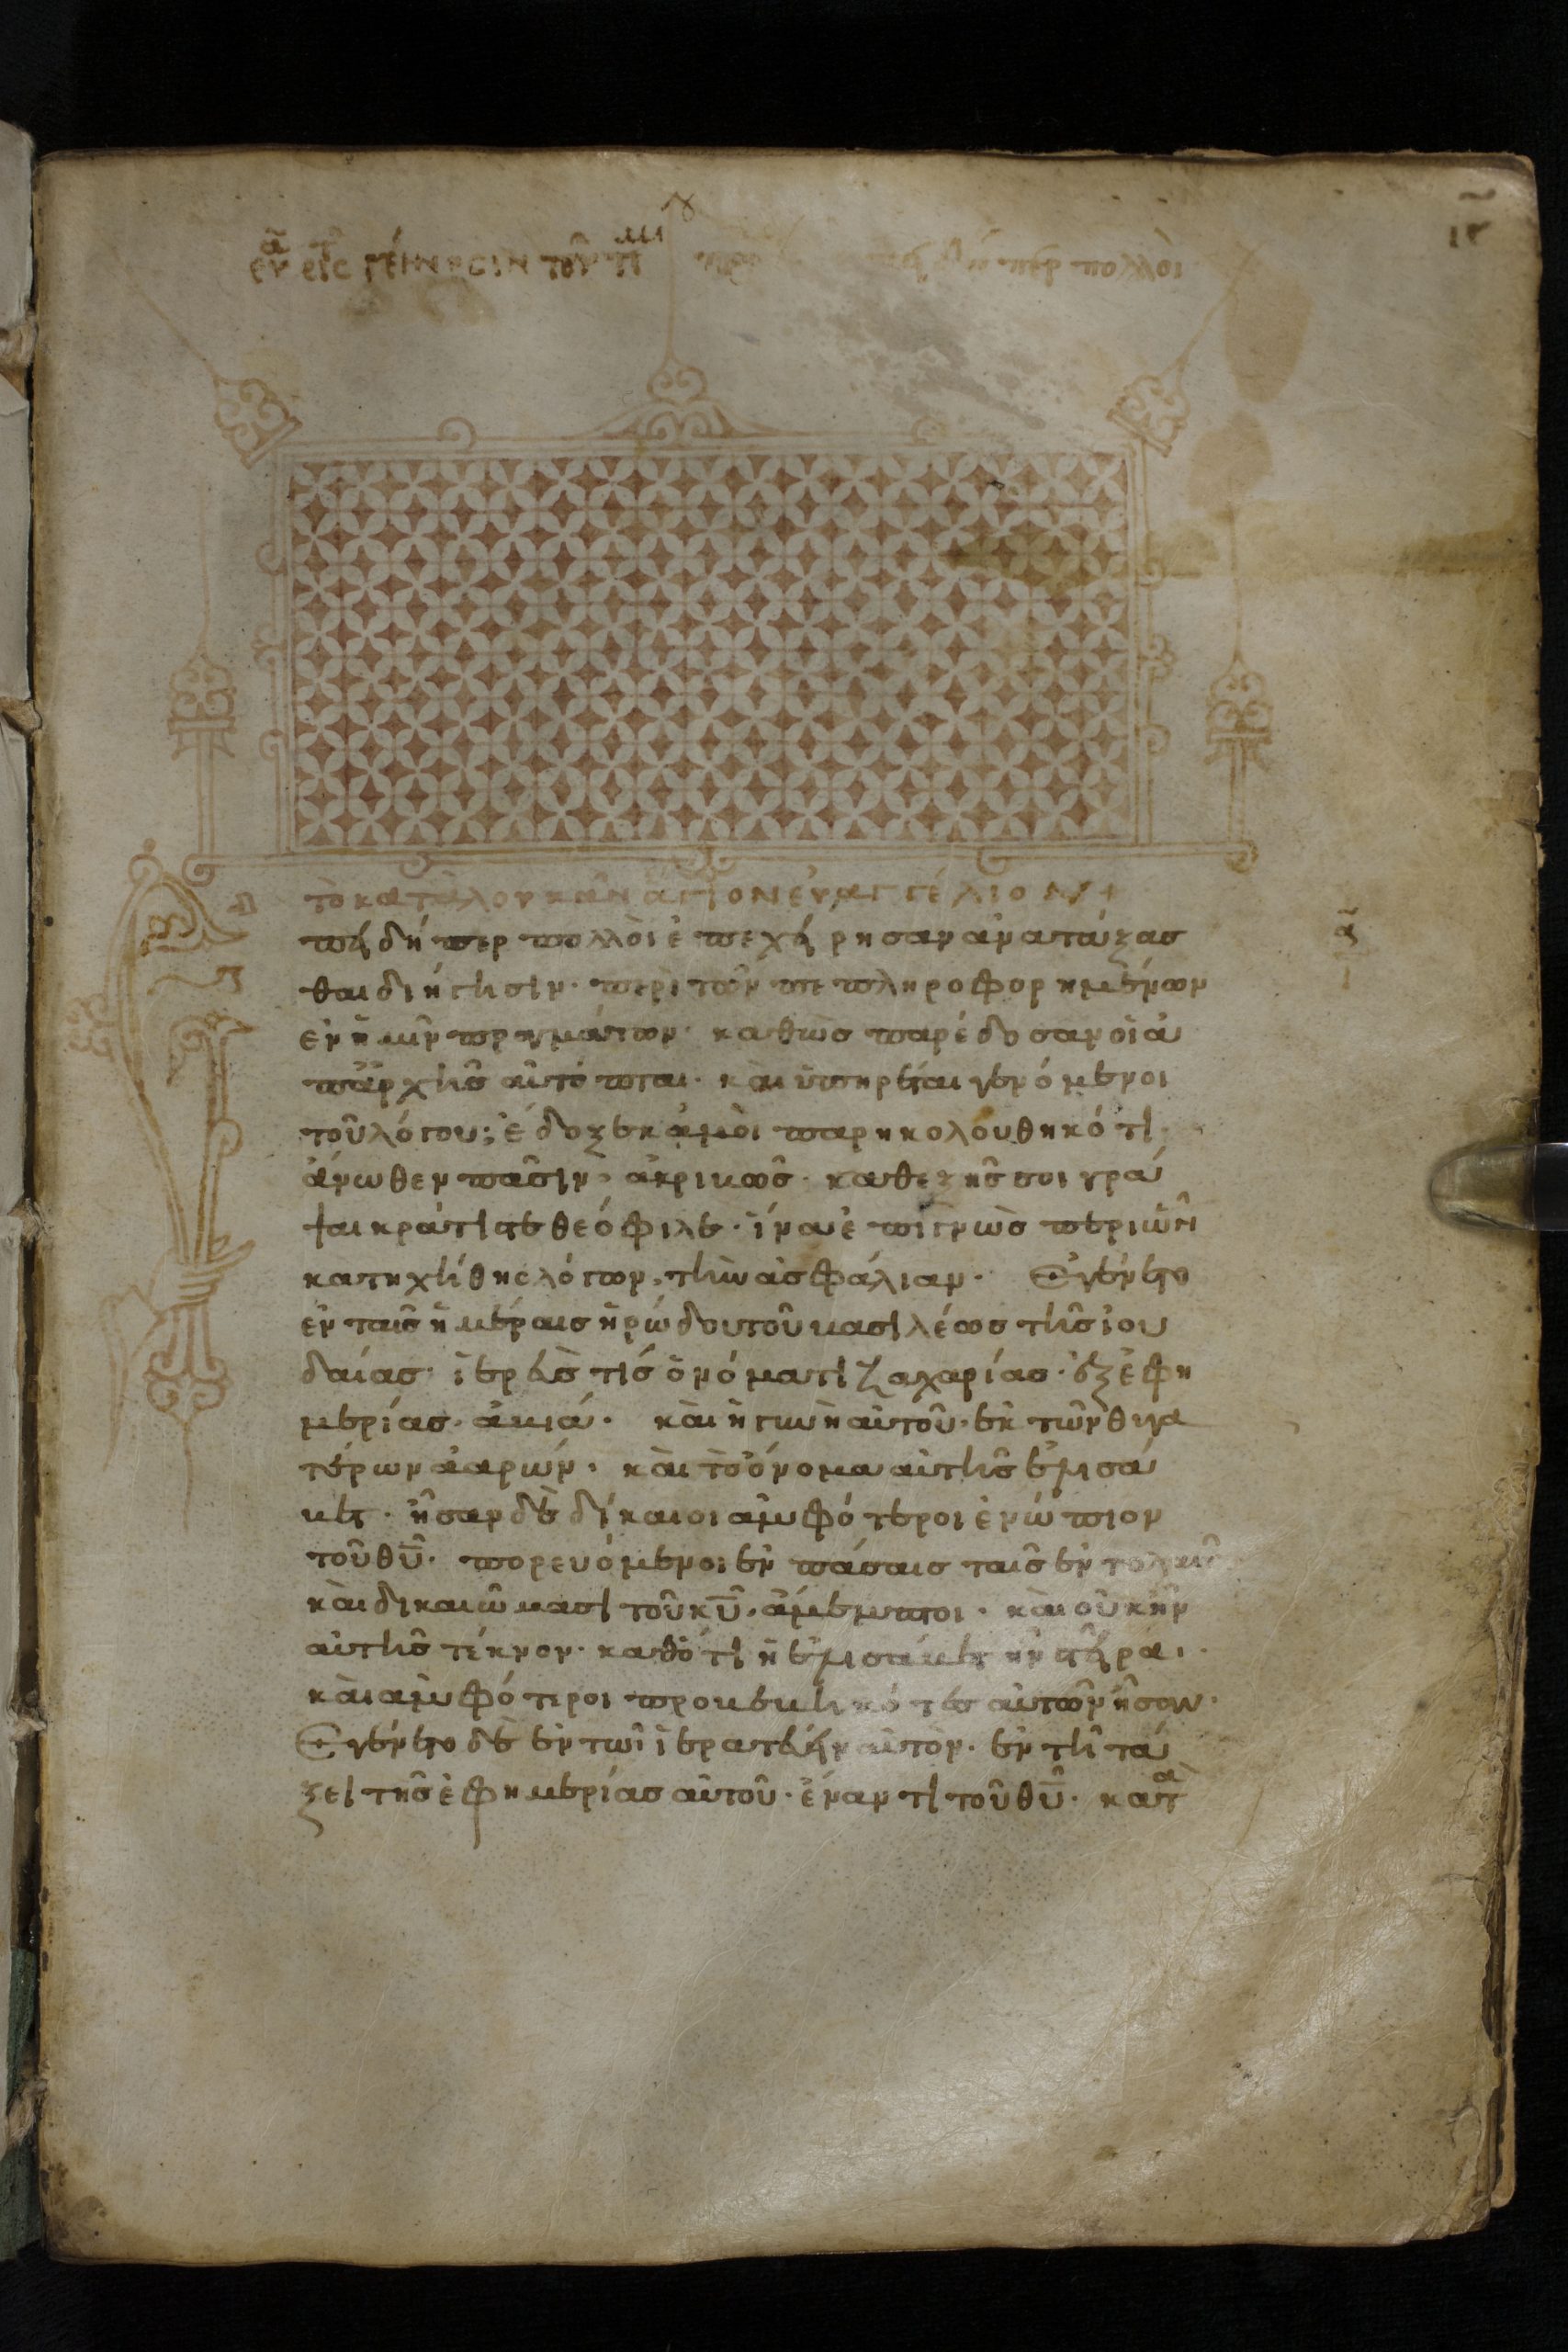 εὐ εἰς γέννησιν τοῦ
τὸ κατὰ λουκᾶν ἅγιον ἐυαγγέλιον
πειδήπερ πολλοὶ ἐπεχείρησαν ἀνατάξασ
θαι διήγησιν· περὶ τῶν πεπληροφορημένων
ἐν ἡμῖν πραγμάτων· καθὼσ παρέδοσαν οἱ ἀ
πἀρχῆσ αὐτόπται· καὶ ὑπηρέται γενόμενοι
τοῦ λόγου; ἔδοξε κἀμοὶ παρηκολουθηκότι
ἄνωθεν πᾶσιν· ἀκριβῶσ· καθεξῆσ σοι γρά
ψαι κράτιστε θεόφιλε· ἵνα ἐπιγνῶσ περὶ ὧν
κατηχήθησ λόγων, τὴν ἀσφάλιαν· Ἐγένετο
ἐν ταῖσ ἡμέραισ ἡρώδου τοῦ βασιλέωσ τῆσ ἰου
δαίασ· ἱερεὺσ τίσ ὀνόματι ζαχαρίασ· ἐξ ἐφη
μερίασ· ἀβιά· καὶ ἡ γυνὴ αὐτοῦ· ἐκ τῶν θυγα
τέρων ἀαρών· καὶ τὸ ὄνομα αὐτῆσ ἐλισά
βετ· ἦσαν δὲ δίκαιοι ἀμφότεροι ἐνώπιον
τοῦ θῡ· πορευόμενοι ἐν πάσαισ ταῖσ ἐντολαῖσ
καὶ δικαιώμασι τοῦ κῡ· ἄμεμπτοι· καὶ οὐκ ἦν
αὐτῆσ τέκνον· καθότι ἡ ἐλισάβετ ἦν στεῖρα·
καὶ ἀμφότεροι προβεβηκότεσ αὐτῶν ἦσαν·
Ἐγένετο δὲ ἐν τῶι ἱερατεύειν αὐτὸν· ἐν τῆ τά
ξει τῆσ ἐφημερίασ αὐτοῦ· ἔναντι τοῦ θῡ· κατὰ